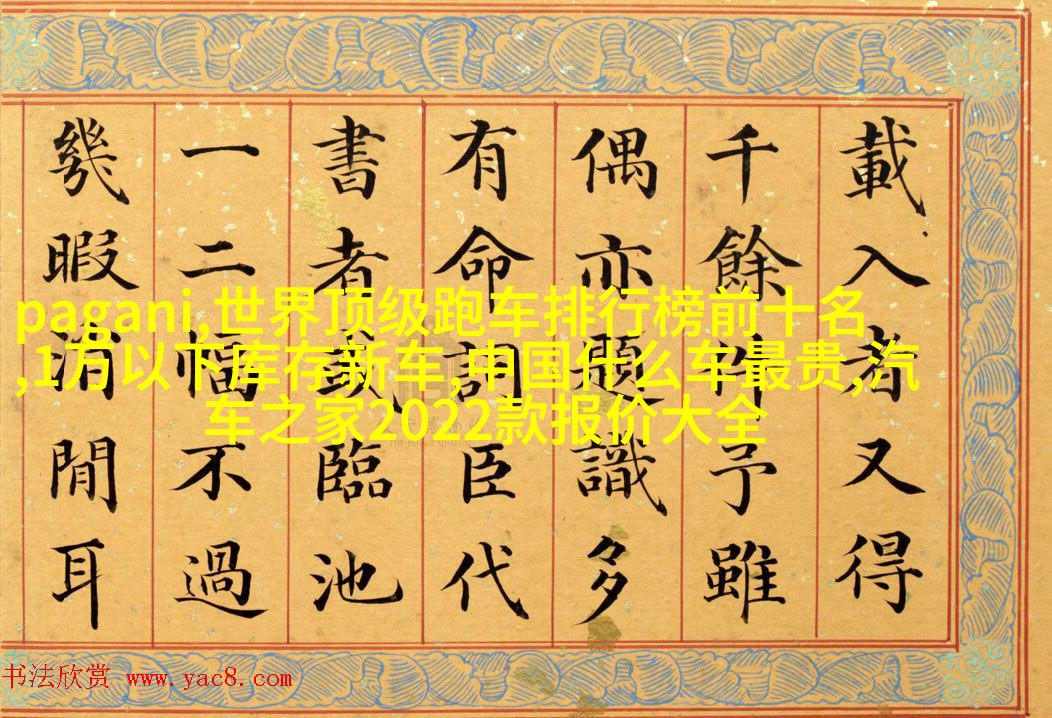 載入者又得
千餘件予雖
偶亦題識多
有命詞臣代
書者或臨池
一二幅不過
幾暇消閒耳
pagani,世界顶级跑车排行榜前十名
,1万以下库存新车,中国什么车最贵,汽
车之家2022款报价大全
书法欣赏 www.yac8.com